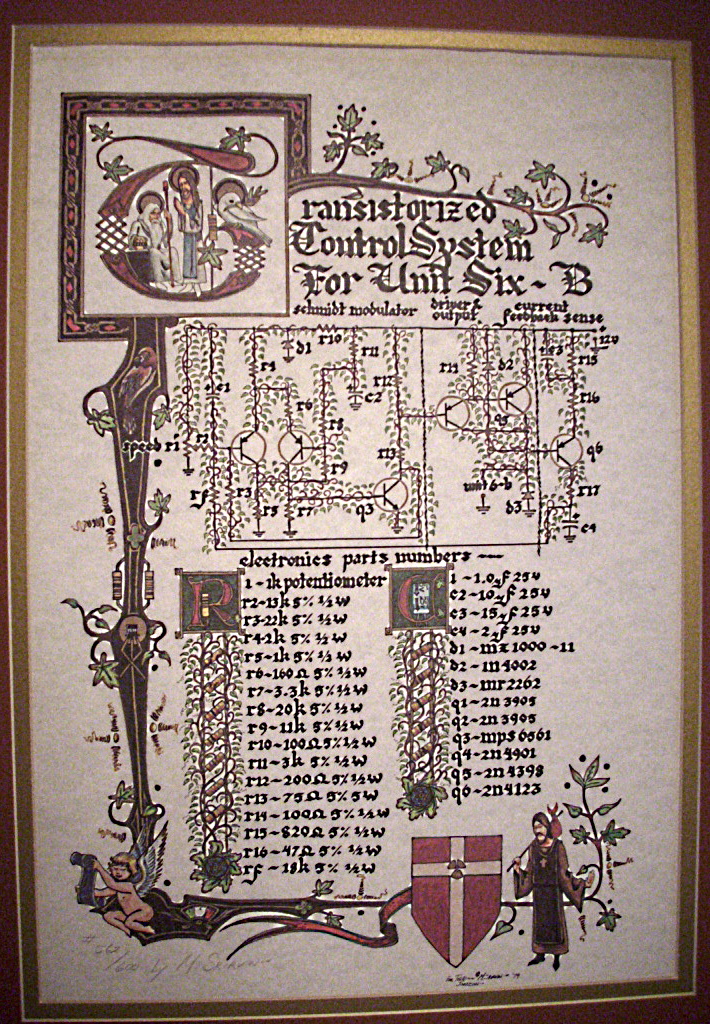 Transistorized
Control System
For Unit Six-B
schmidt modulator driver & output current feedback sense
12v
r10
d1
r11
c1
r4
c2
r12
r14
d2
c3
r15
r16
r6
r8
r2
speed r1
q5
q6
r9
r13
rf
r3
r5
r7
q3
unit 6-b
d3
r17
c4
electronics parts numbers
R1-1k potentiometer
r2-13k 5% ½w
r3-22k 5% ½w
r4-2k 5% ½w
r5-1k 5% ½w
r6-160Ω 5% ½w
r7-3.3k 5% ½w
r8-20k 5% ½w
r9-11k 5% ½w
r10-100Ω 5% ½w
r11-3k 5% ½w
r12-200Ω 5% ½w
r13-75Ω 5% 5w
r14-100Ω 5% ½w
r15-820Ω 5% ½w
r16-47Ω 5% ½w
rf-18k 5% ½w
C1-1.0µf 25v
c2-10µf 25v
c3-15µf 25v
c4-2µf 25v
d1-mz1000-11
d2-1n4002
d3-mr2262
q1-2n3905
q2-2n3905
q3-mps6561
q4-2n4901
q5-2n4398
q6-2n4123